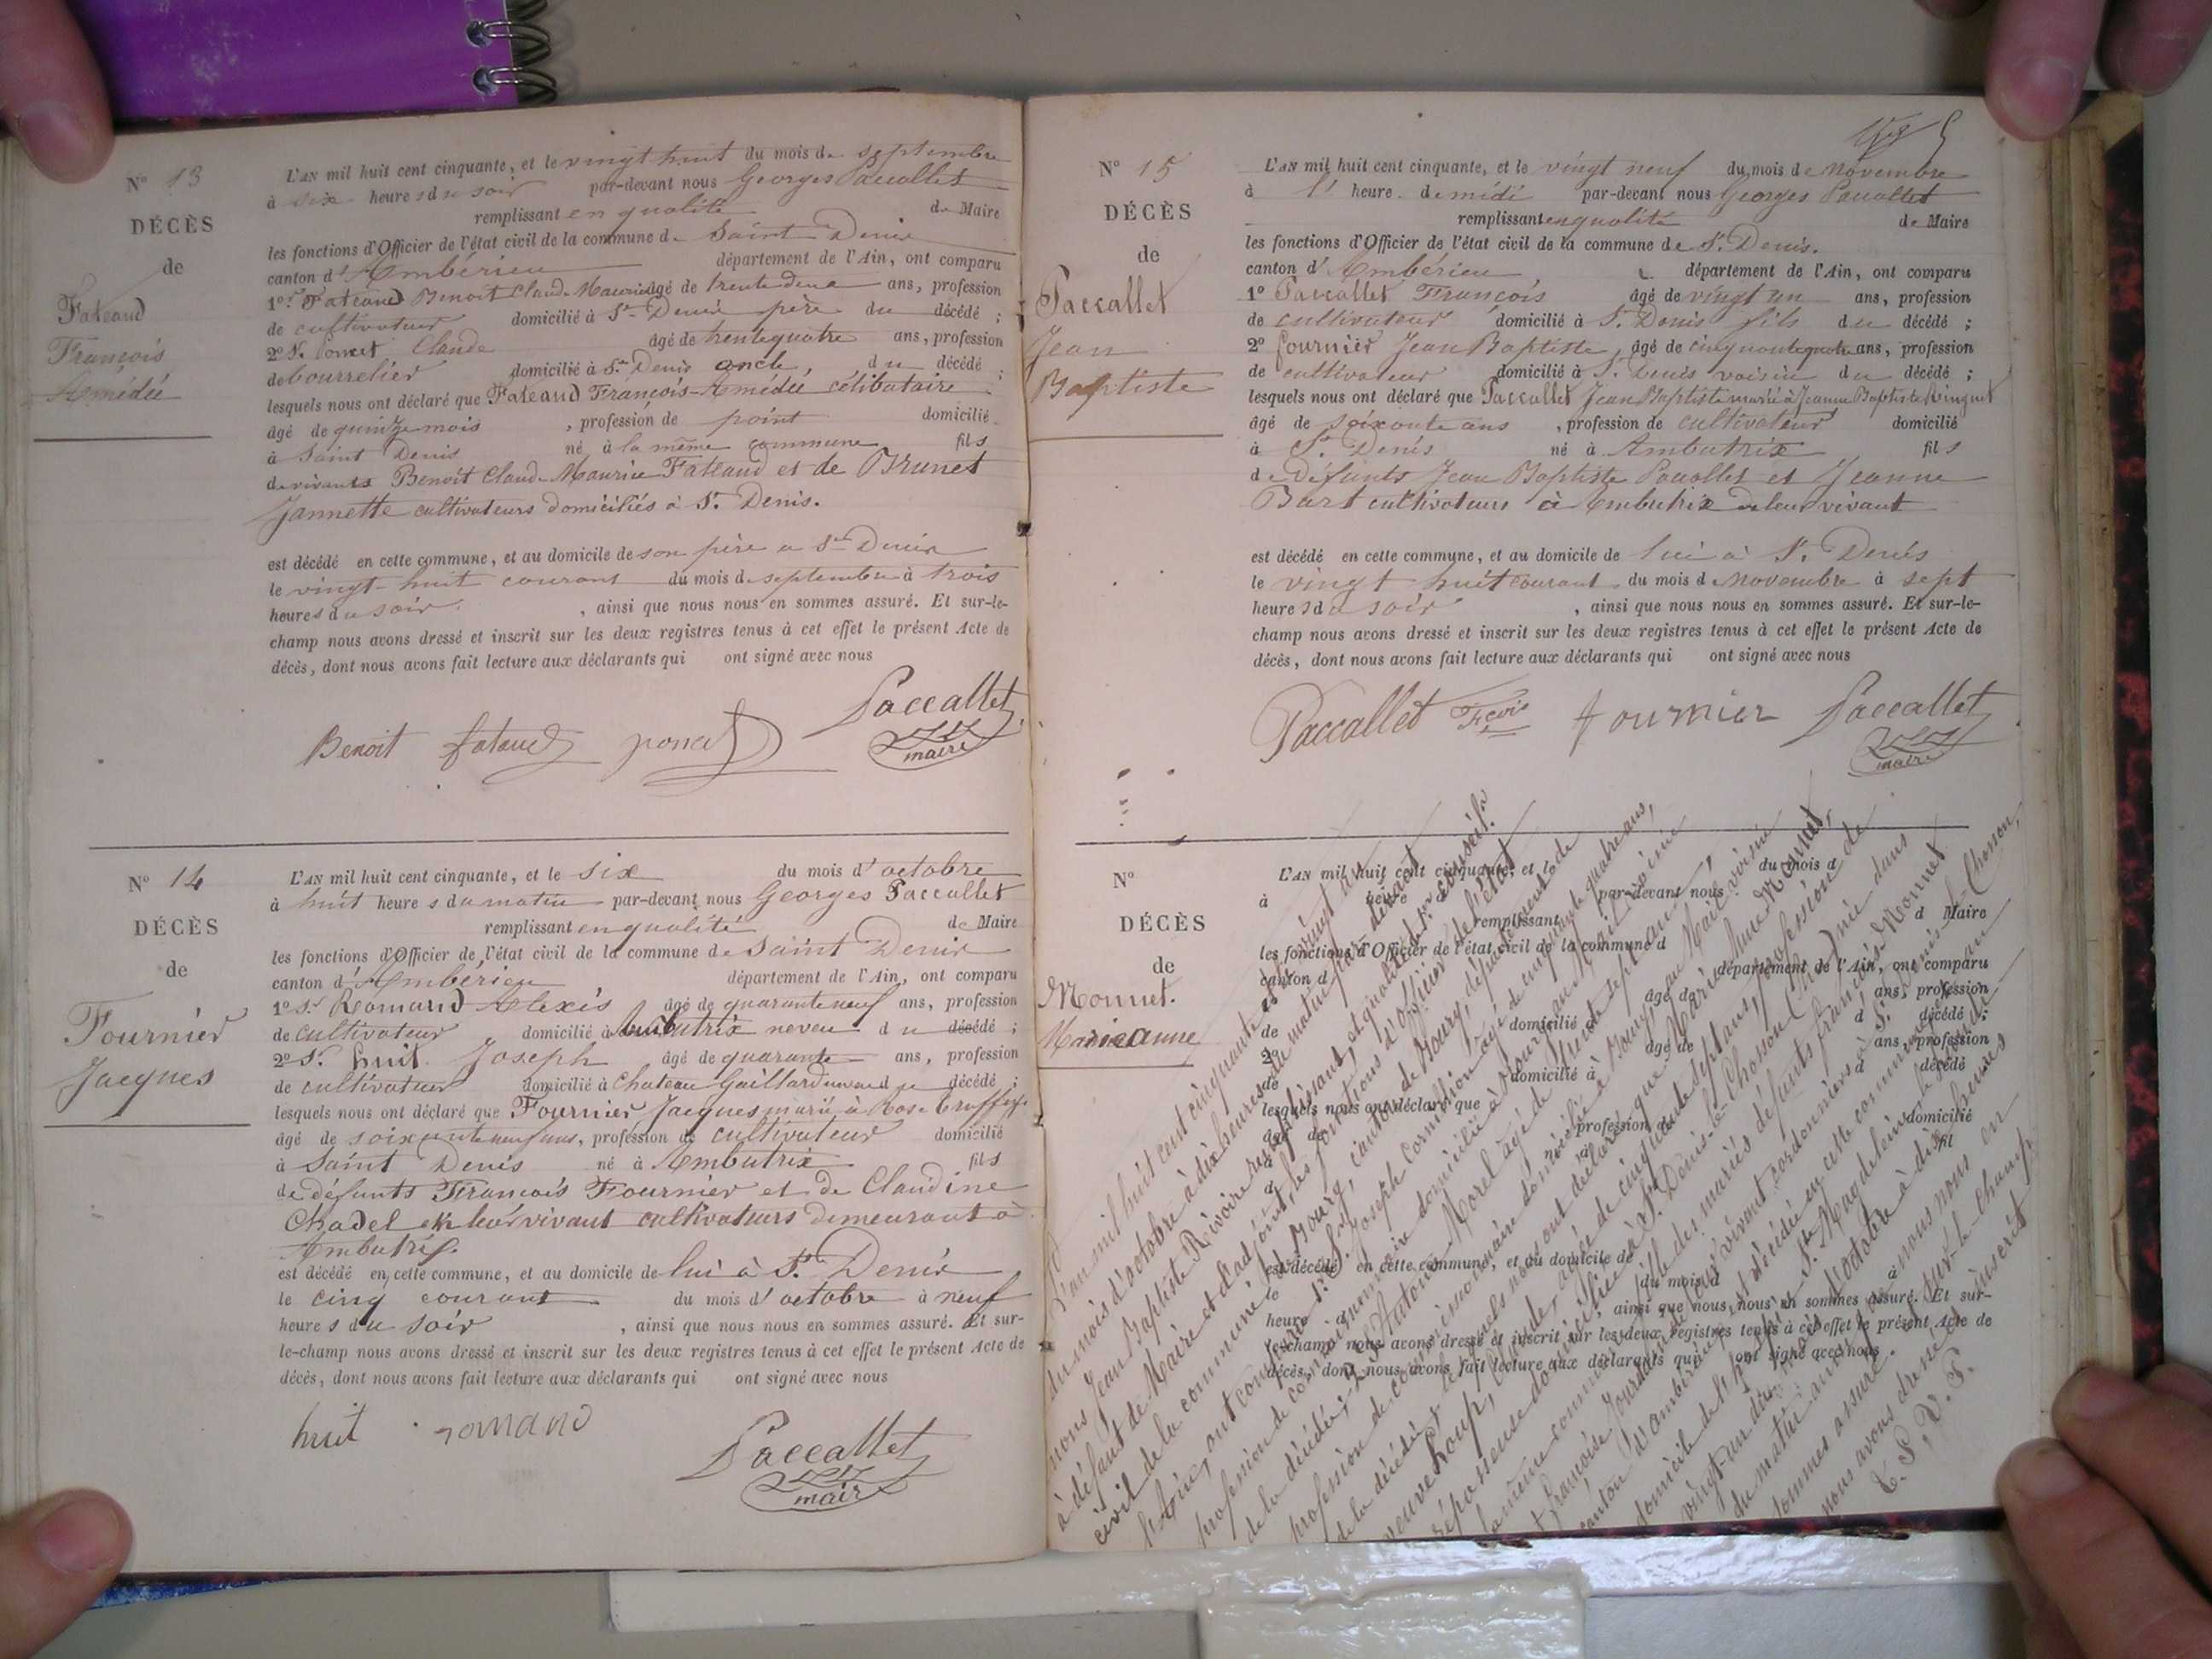 N° 13
DÉCÈS
de
Fateaud
François
Amédée
L'AN mil huit cent cinquante, et le vingt huit du mois de septembre
à six heures du soir par-devant nous Georges Paccallet
remplissant en qualité de Maire
les fonctions d'Officier de l'état civil de la commune de Saint Denis
canton d'Ambérieu département de l'Ain, ont comparu
1° Sr Fateaud Benoit Claude Maurice âgé de trente deux ans, profession
de cultivateur domicilié à St Denis père du décédé ;
2° Sr Poncet Claude âgé de trente quatre ans, profession
de bourrelier domicilié à St Denis oncle, du décédé ;
lesquels nous ont déclaré que Fateaud François-Amédée célibataire
âgé de quinze mois, profession de point domicilié
à Saint Denis né à la même commune fils
de vivants Benoit Claude Maurice Fateaud et de Brunet
Jannette cultivateurs domiciliés à St. Denis.
est décédé en cette commune, et au domicile de son père a St Denis
le vingt-huit courant du mois de septembre à trois
heures du soir, ainsi que nous nous en sommes assuré. Et sur-le-
champ nous avons dressé et inscrit sur les deux registres tenus à cet effet le présent Acte de
décès, dont nous avons fait lecture aux déclarants qui ont signé avec nous
Benoit fataud poncet Paccallet
maire
N° 14
DÉCÈS
de
Fournier
Jacques
L'AN mil huit cent cinquante, et le six du mois d'octobre
à huit heures du matin par-devant nous Georges Paccallet
remplissant en qualité de Maire
les fonctions d'Officier de l'état civil de la commune de Saint Denis
canton d'Ambérieu département de l'Ain, ont comparu
1° Sr Romand Alexis âgé de quarante neuf ans, profession
de cultivateur domicilié à Ambutrix neveu du décédé ;
2° Sr. huit Joseph âgé de quarante ans, profession
de cultivateur domicilié à Chateau Gaillard du décédé ;
lesquels nous ont déclaré que Fournier Jacques marié à Rose
âgé de soixante neuf ans, profession de cultivateur domicilié
à Saint Denis né à Ambutrix fils
de défunts François Fournier et de Claudine
Chadel de leur vivant cultivateurs demeurant à
Ambutrix.
est décédé en cette commune, et au domicile de lui à St. Denis
le cinq courant du mois d'octobre à neuf
heures du soir, ainsi que nous nous en sommes assuré. Et sur-
le-champ nous avons dressé et inscrit sur les deux registres tenus à cet effet le présent Acte de
décès, dont nous avons fait lecture aux déclarants qui ont signé avec nous
huit romand Paccallet
maire
N° 15
DÉCÈS
de
Paccallet
Jean
Baptiste
L'AN mil huit cent cinquante, et le vingt neuf du mois de novembre
à 1' heure de midi par-devant nous Georges Paccallet
remplissant en qualité de Maire
les fonctions d'Officier de l'état civil de la commune de St. Denis.
canton d'Ambérieu département de l'Ain, ont comparu
1° Paccallet François âgé de vingt un ans, profession
de cultivateur domicilié à St. Denis fils du décédé ;
2° fournier Jean Baptiste, âgé de cinquante quatre ans, profession
de cultivateur domicilié à St. Denis voisin du décédé ;
lesquels nous ont déclaré que Paccallet Jean Baptiste marié à Jeanne Baptiste
âgé de soixante ans, profession de cultivateur domicilié
à St. Denis né à Ambutrix fils
de défunts Jean Baptiste Paccallet et Jeanne
Bart cultivateurs à Ambutrix de leur vivant
est décédé en cette commune, et au domicile de lui à St. Denis
le vingt huit courant du mois de novembre à sept
heures du soir, ainsi que nous nous en sommes assuré. Et sur-le-
champ nous avons dressé et inscrit sur les deux registres tenus à cet effet le présent Acte de
décès, dont nous avons fait lecture aux déclarants qui ont signé avec nous
Paccallet Fçois fournier Paccallet
maire
N°
DÉCÈS
de
Monnet.
Marie anne
L'AN mil huit cent cinquante, et le du mois d
à heure par-devant nous
remplissant d Maire
les fonctions d'Officier de l'état civil de la commune d
canton d département de l'Ain, ont comparu
âgé de ans, profession
de domicilié d décédé ;
2° âgé de ans, profession
de domicilié à d décédé
lesquels nous ont déclaré que
âgé de profession de domicilié
à né à fil
d
est décédé en cette commune, et au domicile de
le du mois d à
heure d, ainsi que nous nous en sommes assuré. Et sur-
le-champ nous avons dressé et inscrit sur les deux registres tenus à cet effet le présent Acte de
décès, dont nous avons fait lecture aux déclarants qui ont signé avec nous
L'an mil huit cent cinquante et le vingt un
du mois d'octobre à dix heures du matin par devant
nous Jean Baptiste Révoire remplissant, en qualité de conseil.
à défaut de Maire et d'adjoint, les fonctions d'officier de l'état
civil de la commune de Bourg, canton de Bourg, département de
l'Ain, ont comparu 1° Sr. Joseph Cornillon âgé de cinquante quatre ans,
profession de commissionnaire domicilié à Bourg au Mail voisin
de la décédée; Antoine Morel âgé de trente sept ans,
profession de commissionnaire domicilié à Bourg, au Mail voisin
de la décédée lesquels nous ont déclaré que Marie Anne Monnet,
veuve Loup, Claude, âgée de cinquante sept ans, profession de
repasseuse domiciliée à St. Denis-le-Chosson (Ain) née dans
la même commune fille des mariés défunts françois Monnet
et françoise Jourdan de leur vivant cordonniers à St. Denis-le-Chosson,
canton d'ambérieu, est décédée en cette commune, au
domicile de Ste. Magdeleine, le
vingt-un du mois d'octobre à dix heures
du matin ainsi que nous nous en
sommes assuré. Et sur-le-champ
nous avons dressé et inscrit
T. S. V. P.